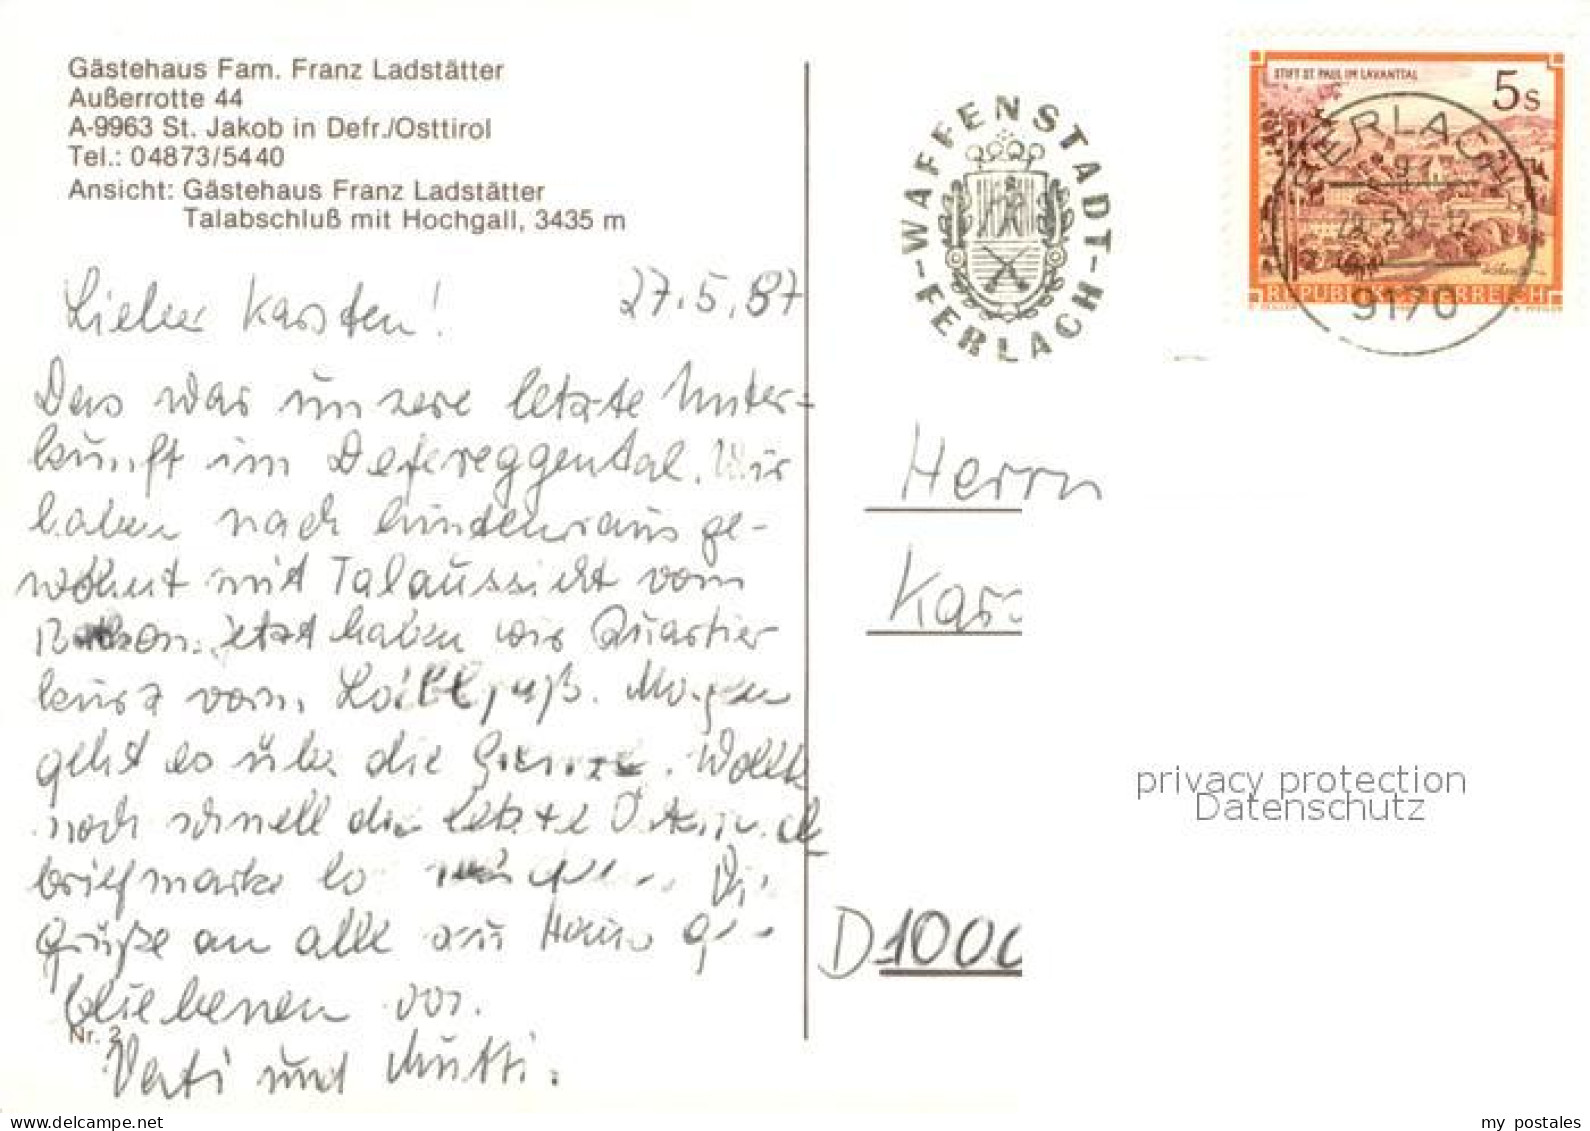 Gästehaus Fam. Franz Ladstätter
Außerrotte 44
A-9963 St. Jakob in Defr./Osttirol
Tel.: 04873/5440
Ansicht: Gästehaus Franz Ladstätter
Talabschluß mit Hochgall, 3435 m
27.5.87
Lieber Karsten!
Das war unsere letzte Unter-
kunft im Defereggental. Wir
haben nach hinten raus ge-
wohnt mit Talaussicht vom
Balkon. Jetzt haben wir Quartier
kurz vorm Loiblpaß. Morgen
geht es über die Grenze. Wollte
noch schnell die letzte
briefmarke
Grüße an alle zu Haus Ge-
bliebenen von
Nr. 2
Vati und Mutti.
WAFFENSTADT-FERLACH-
STIFT ST. PAUL IM LAVANTTAL
5 S
REPUBLIK ÖSTERREICH
FERLACH
29.-5.87-12
9170
Herrn
D 1000
privacy protection
Datenschutz
my_postales